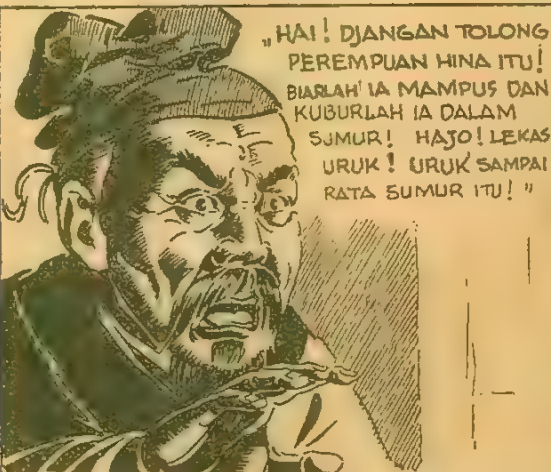 „HAI! DJANGAN TOLONG
PEREMPUAN HINA ITU!
BIARLAH IA MAMPUS DAN
KUBURLAH IA DALAM
SUMUR! HAJO! LEKAS
URUK! URUK SAMPAI
RATA SUMUR ITU!"